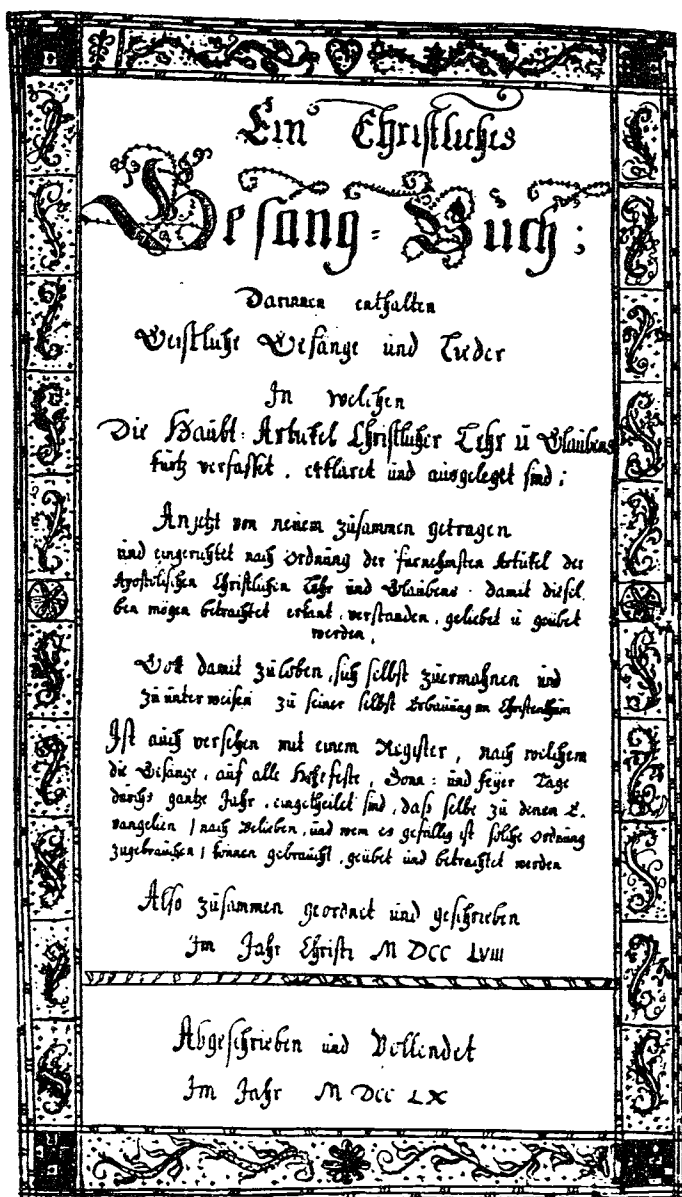 Ein Christliches
Gesang-Buch;
Darinnen enthalten
Geistliche Gesänge und Lieder
In welchen
Die Haubt-Artickel Christlicher Lehr ū Glaubens
kurtz verfasset, erkläret und ausgeleget sind;
Anjetzt von neuem zusammen getragen
und eingerichtet nach Ordnung der fürnehmsten Artickel der
Apostolischen Christlichen Lehr und Glaubens. damit diesel,
ben mögen betrachtet erkant, verstanden, geliebet ū geübet
werden,
Gott damit zu loben, sich selbst zuermahnen und
zu unterweisen zu seiner selbst Erbauung im Christenthum
Ist auch versehen mit einem Register, nach welchem
die Gesänge, auf alle Hohefeste, Sonn: und feyer Tage
durchs gantze Jahr, eingetheilet sind, daß selbe zu denen E,
vangelien / nach Belieben, und wem es gefällig ist solche Ordnung
zugebrauchen / können gebraucht, geübet und betrachtet werden
Also zusammen geordnet und geschrieben
Im Jahr Christi M DCC LVIII
Abgeschrieben und Vollendet
Im Jahr M DCC LX